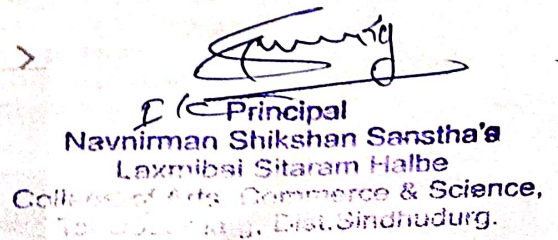 I/C Principal
Navnirman Shikshan Sanstha's
Laxmibai Sitaram Halbe
College of Arts, Commerce & Science,
Dist. Sindhudurg.